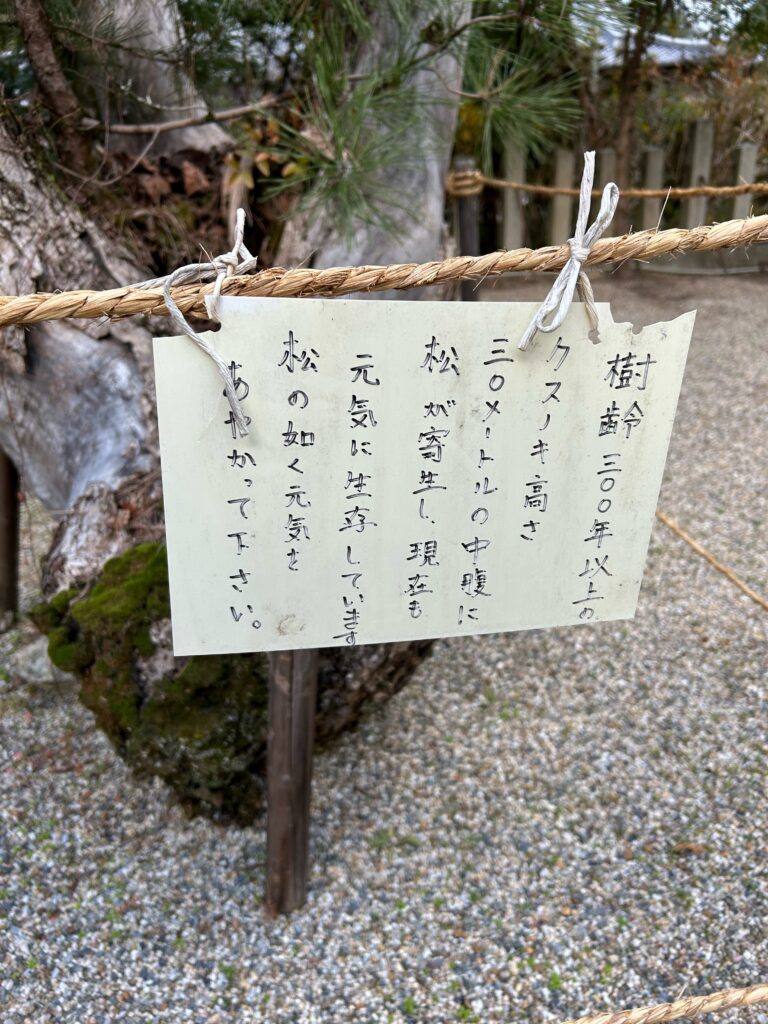 樹齢三〇〇年以上の
クスノキ高さ
三〇メートルの中腹に
松が寄生し、現在も
元気に生存しています
松の如く元気を
あやかって下さい。